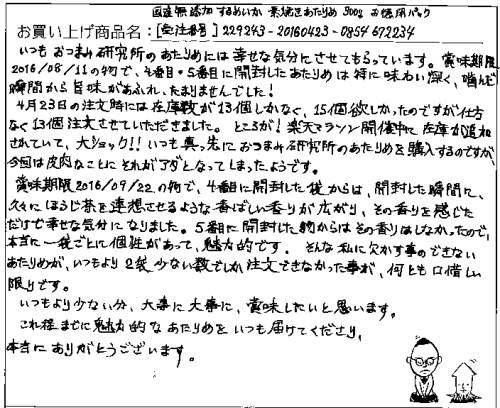 国産無添加 するめいか 素焼きあたりめ 300g お徳用パック
お買い上げ商品名：[受注番号] 229243-20160423-0854672234
いつもおつまみ研究所のあたりめには幸せな気分にさせてもらっています。賞味期限
2016/08/11の物で、4番目・5番目に開封したあたりめは特に味わい深く、噛んだ
瞬間から旨味があふれ、たまりませんでした！
4月23日の注文時には在庫数が13個しかなく、15個欲しかったのですが仕方
なく13個注文させていただきました。ところが！楽天マラソン開催中に在庫が追加
されていて、大ショック!!いつも真っ先におつまみ研究所のあたりめを購入するのですが、
今回は皮肉なことにそれがアダとなってしまったようです。
賞味期限2016/09/22の物で、4番目に開封した後からは、開封した瞬間に、
久々にほうじ茶を連想させるような香ばしい香りが広がり、その香りを感じた
だけで幸せな気分になりました。5番目に開封した物からはその香りはしなかったので、
本当に一袋ごとに個性があって、魅力的です。そんな私に欠かす事のできない
あたりめが、いつもより2袋少ない数でしか注文できなかった事が、何とも口惜しい
限りです。
いつもより少ない分、大事に大事に、賞味したいと思います。
これ程までに魅力的なあたりめをいつも届けてくださり、
本当にありがとうございます。